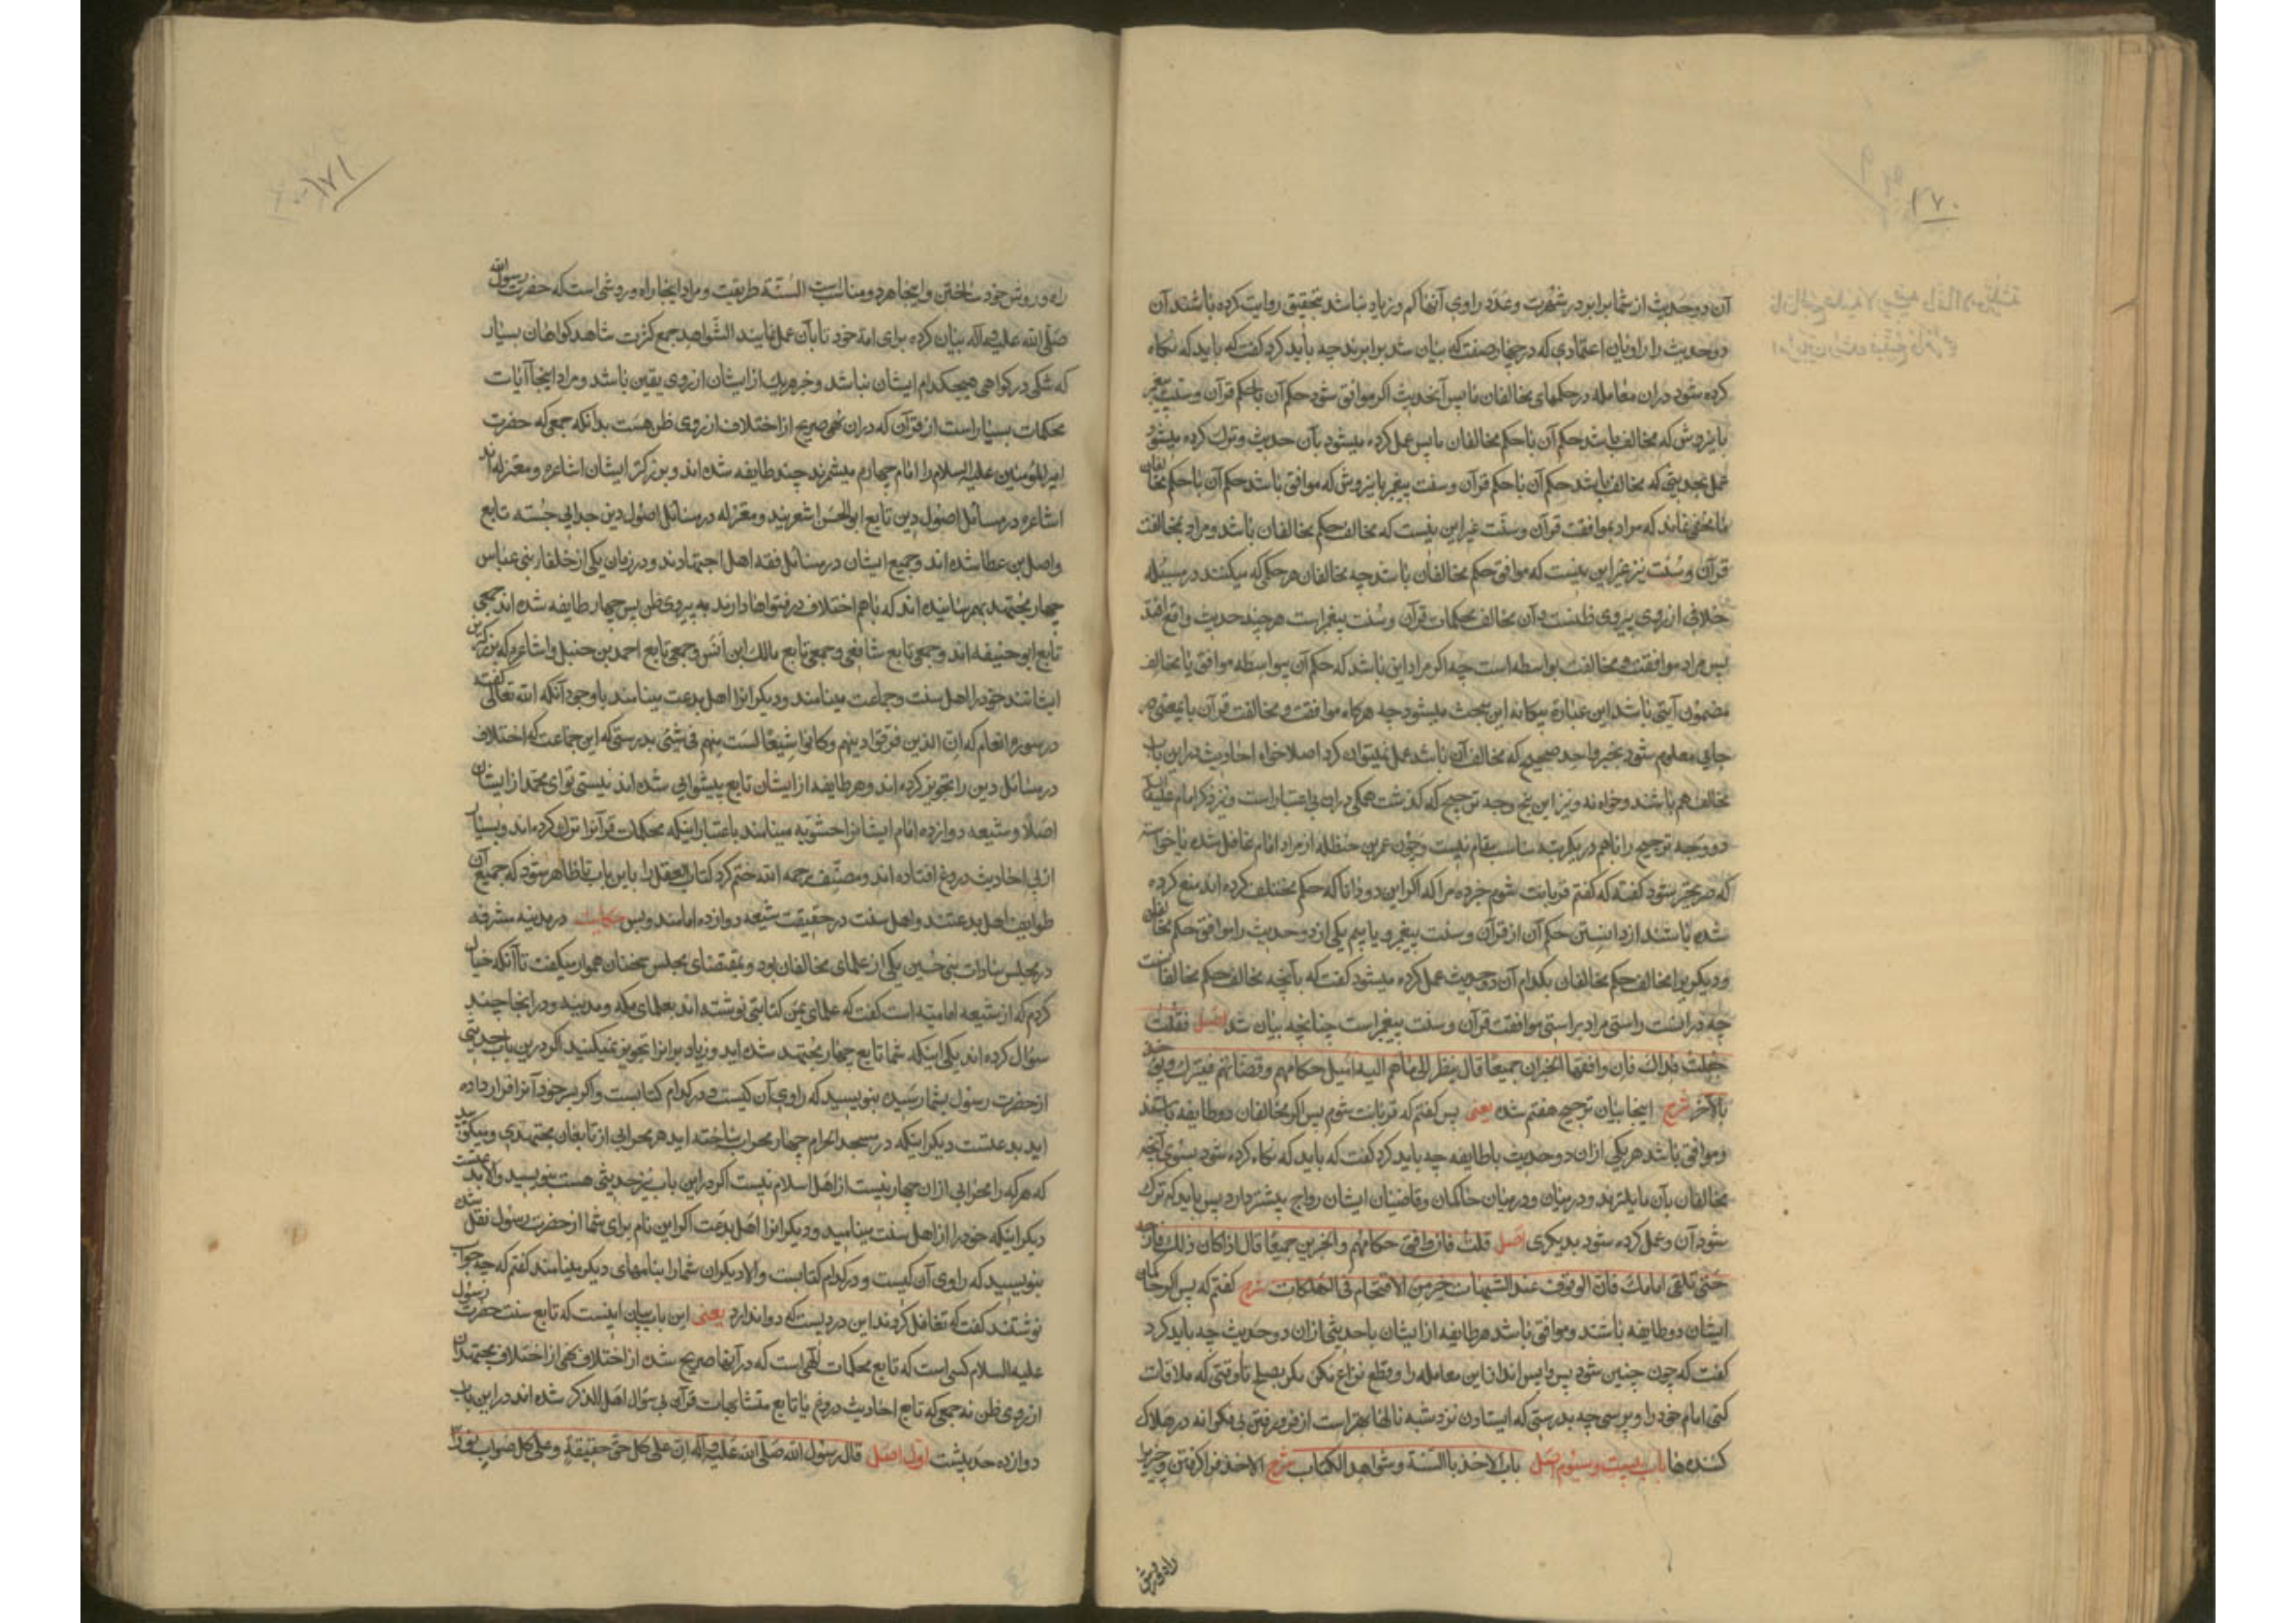 ۱۷۰
آن دو حدیث از شما برابر در شهرت و عدد راوی آنها کم و زیاد نباشد بتحقیق روایت کرده باشند آن
دو حدیث را راویان اعتمادی که در چهار صفت که بیان شد برابرند چه باید کرد گفت که باید که نگاه
کرده شود در آن معامله در حکمهای مخالفان ما پس آنحدیث اگر موافق شود حکم آن باحکم قرآن و سنت پیغمبر
باینروش که مخالف باشد حکم آن باحکم مخالفان ما پس عمل کرده میشود بآن حدیث و ترک کرده میشود
عمل بحدیثی که مخالف باشد حکم آن باحکم قرآن و سنت پیغمبر باینروش که موافق باشد حکم آن باحکم مخالفان
ما مخفی نماند که مراد بموافقت قرآن و سنت غیر این نیست که مخالف حکم مخالفان باشد و مراد بمخالفت
قرآن و سنت نیز غیر این نیست که موافق حکم مخالفان باشد چه مخالفان هر حکمی که میکنند در مسئله
خلافی از روی پیروی ظنست و آن مخالف محکمات قرآن و سنت پیغمبر است هر چند حدیث واقع افتد
پس مراد موافقت و مخالفت بواسطه است چه اگر مراد این باشد که حکم آن بیواسطه موافق یا مخالف
مضمون آیتی باشد این عبارة بیگانه این مبحث میشود چه هرگاه موافقت و مخالفت قرآن باینمعنی در
جایی معلوم شود بخبر واحد صحیح که مخالف آن باشد عمل نمیتوان کرد اصلا خواه احادیث در این باب
مخالف هم باشند و خواه نه و نیز این پنج وجه ترجیح که گذشت همگی در آن بی اعتبار است و نیز ذکر امام علیه السلام
دو وجه ترجیح را با هم در یکمرتبه مناسب مقام نیست و چون عمر بن حنظله از مراد امام غافل شده یا خواسته
که صریحتر شود گفته که گفتم قربانت شوم خبر ده مرا که اگر این دو دانا که حکم مختلف کرده اند منع کرده
شده باشند از دانستن حکم آن از قرآن و سنت پیغمبر و یابیم یکی از دو حدیث را موافق حکم مخالفان
و دیگری را مخالف حکم مخالفان بکدام آن دو حدیث عمل کرده میشود گفت که بآنچه مخالف حکم مخالفانست
چه در آنست راستی مراد براستی موافقت قرآن و سنت پیغمبر است چنانچه بیان شد اصل فقلت
جعلت فداك فان وافقها الخبران جمیعا قال ینظر الی ما هم الیه امیل حکامهم و قضاتهم فیترك و یؤخذ
بالآخر شرح اینجا بیان ترجیح هفتم شده یعنی پس گفتم که قربانت شوم پس اگر مخالفان دو طایفه باشند
و موافق باشد هر یکی از آن دو حدیث باطایفه چه باید کرد گفت که باید که نگاه کرده شود بسوی آنچه
مخالفان بآن مایلترند و در میان و در میان حاکمان و قاضیان ایشان رواج بیشتر دارد پس باید که ترک
شود آن و عمل کرده شود بدیگری اصل قلت فان وافق حکامهم الخبرین جمیعا قال اذا کان ذلك فارجه
حتی تلقی امامك فان الوقوف عند الشبهات خیر من الاقتحام فی الهلکات شرح گفتم که پس اگر حاکمان
ایشان دو طایفه باشند و موافق باشد هر طایفه از ایشان باحدیثی از آن دو حدیث چه باید کرد
گفت که چون چنین شود پس واپس انداز این معامله را و قطع نزاع مکن مگر بصلح تا وقتی که ملاقات
کنی امام خود را و پرسی چه بدرستی که ایستادن نزد شبه ناکیها بهتر است از فرو رفتن بی فکرانه در هلاک
کننده ها باب بیست و سوم اصل باب الاخذ بالسنة و شواهد الکتاب شرح الاخذ فرا گرفتن و چیزیرا
راه و روش
۱۷۱
راه و روش خود ساختن و اینجا هر دو مناسبست السنة طریقت و مراد اینجا راه و روشی است که حضرت رسول الله
صلی الله علیه و آله بیان کرده برای امة خود تا بآن عمل نمایند الشواهد جمع کثرت شاهد گواهان بسیار
که شکی در گواهی هیچکدام ایشان نباشد و خبر هر یک از ایشان از روی یقین باشد و مراد اینجا آیات
محکمات بسیار است از قرآن که در آن نهی صریح از اختلاف از روی ظن هست بدانکه جمعی که حضرت
امیر المؤمنین علیه السلام را امام چهارم میشمرند چند طایفه شده اند و بزرگتر ایشان اشاعره و معتزله اند
اشاعره در مسائل اصول دین تابع ابو الحسن اشعریند و معتزله در مسائل اصول دین جدایی جسته تابع
واصل بن عطا شده اند و جمیع ایشان در مسائل فقه اهل اجتهادند و در زمان یکی از خلفاء بنی عباس
چهار مجتهد بهم رسانیده اند که باهم اختلاف در فتواها دارند به پیروی ظن پس چهار طایفه شده اند جمعی
تابع ابو حنیفه اند و جمعی تابع شافعی و جمعی تابع مالك ابن انس و جمعی تابع احمد بن حنبل و اشاعره که بزرگترین
ایشانند خود را اهل سنت و جماعت مینامند و دیگرانرا اهل بدعت مینامند باوجود آنکه الله تعالی گفته
در سوره انعام که ان الذین فرقوا دینهم و کانوا شیعا لست منهم فی شئ بدرستی که این جماعت که اختلاف
در مسائل دین را تجویز کرده اند و هر طایفه از ایشان تابع پیشوایی شده اند نیستی تو ای محمد از ایشان
اصلا و شیعه دوازده امام ایشانرا حشویه مینامند باعتبار اینکه محکمات قرآنرا ترک کرده اند و بسیار
از پی احادیث دروغ افتاده اند و مصنف رحمه الله ختم کرد کتاب العقل را باین باب تا ظاهر شود که جمیع آن
طوایف اهل بدعتند و اهل سنت در حقیقت شیعه دوازده امامند و بس حکایت در مدینه مشرفه
در مجلس سادات بنی حسین یکی از علمای مخالفان بود و بمقتضای مجلس سخنان هموار میگفت تا آنکه خیال
کردم که از شیعه امامیه است گفت که علمای یمن کتابتی نوشته اند بعلمای مکه و مدینه و در آنجا چند
سؤال کرده اند یکی اینکه شما تابع چهار مجتهد شده اید و زیاد بر آنرا تجویز نمیکنید اگر درین باب حدیثی
از حضرت رسول بشما رسیده بنویسید که راوی آن کیست و در کدام کتابست و اگر سر خود آنرا قرار داده
اید بدعتست دیگر اینکه در مسجد الحرام چهار محراب ساخته اید هر محرابی از تابعان مجتهدی و میگویید
که هر که را محرابی از آن چهار نیست از اهل اسلام نیست اگر در این باب نیز حدیثی هست بنویسید والا بدعتست
دیگر اینکه خود را از اهل سنت مینامید و دیگرانرا اهل بدعت اگر این نام برای شما از حضرت رسول نقل شده
بنویسید که راوی آن کیست و در کدام کتابست والا دیگران شما را بنامهای دیگر مینامند گفتم که چه جواب
نوشتند گفت که تغافل کردند این دردیست که دوا ندارد یعنی این باب بیان اینست که تابع سنت حضرت رسول
علیه السلام کسی است که تابع محکمات الهی است که در آنها صریح شده از اختلاف نهی از اختلاف مجتهدان
از روی ظن نه جمعی که تابع احادیث دروغ یا تابع متشابهات قرآن بی سؤال اهل الذکر شده اند در این باب
دوازده حدیثست اول اصل قال رسول الله صلی الله علیه و آله ان علی کل حق حقیقة و علی کل صواب نورا